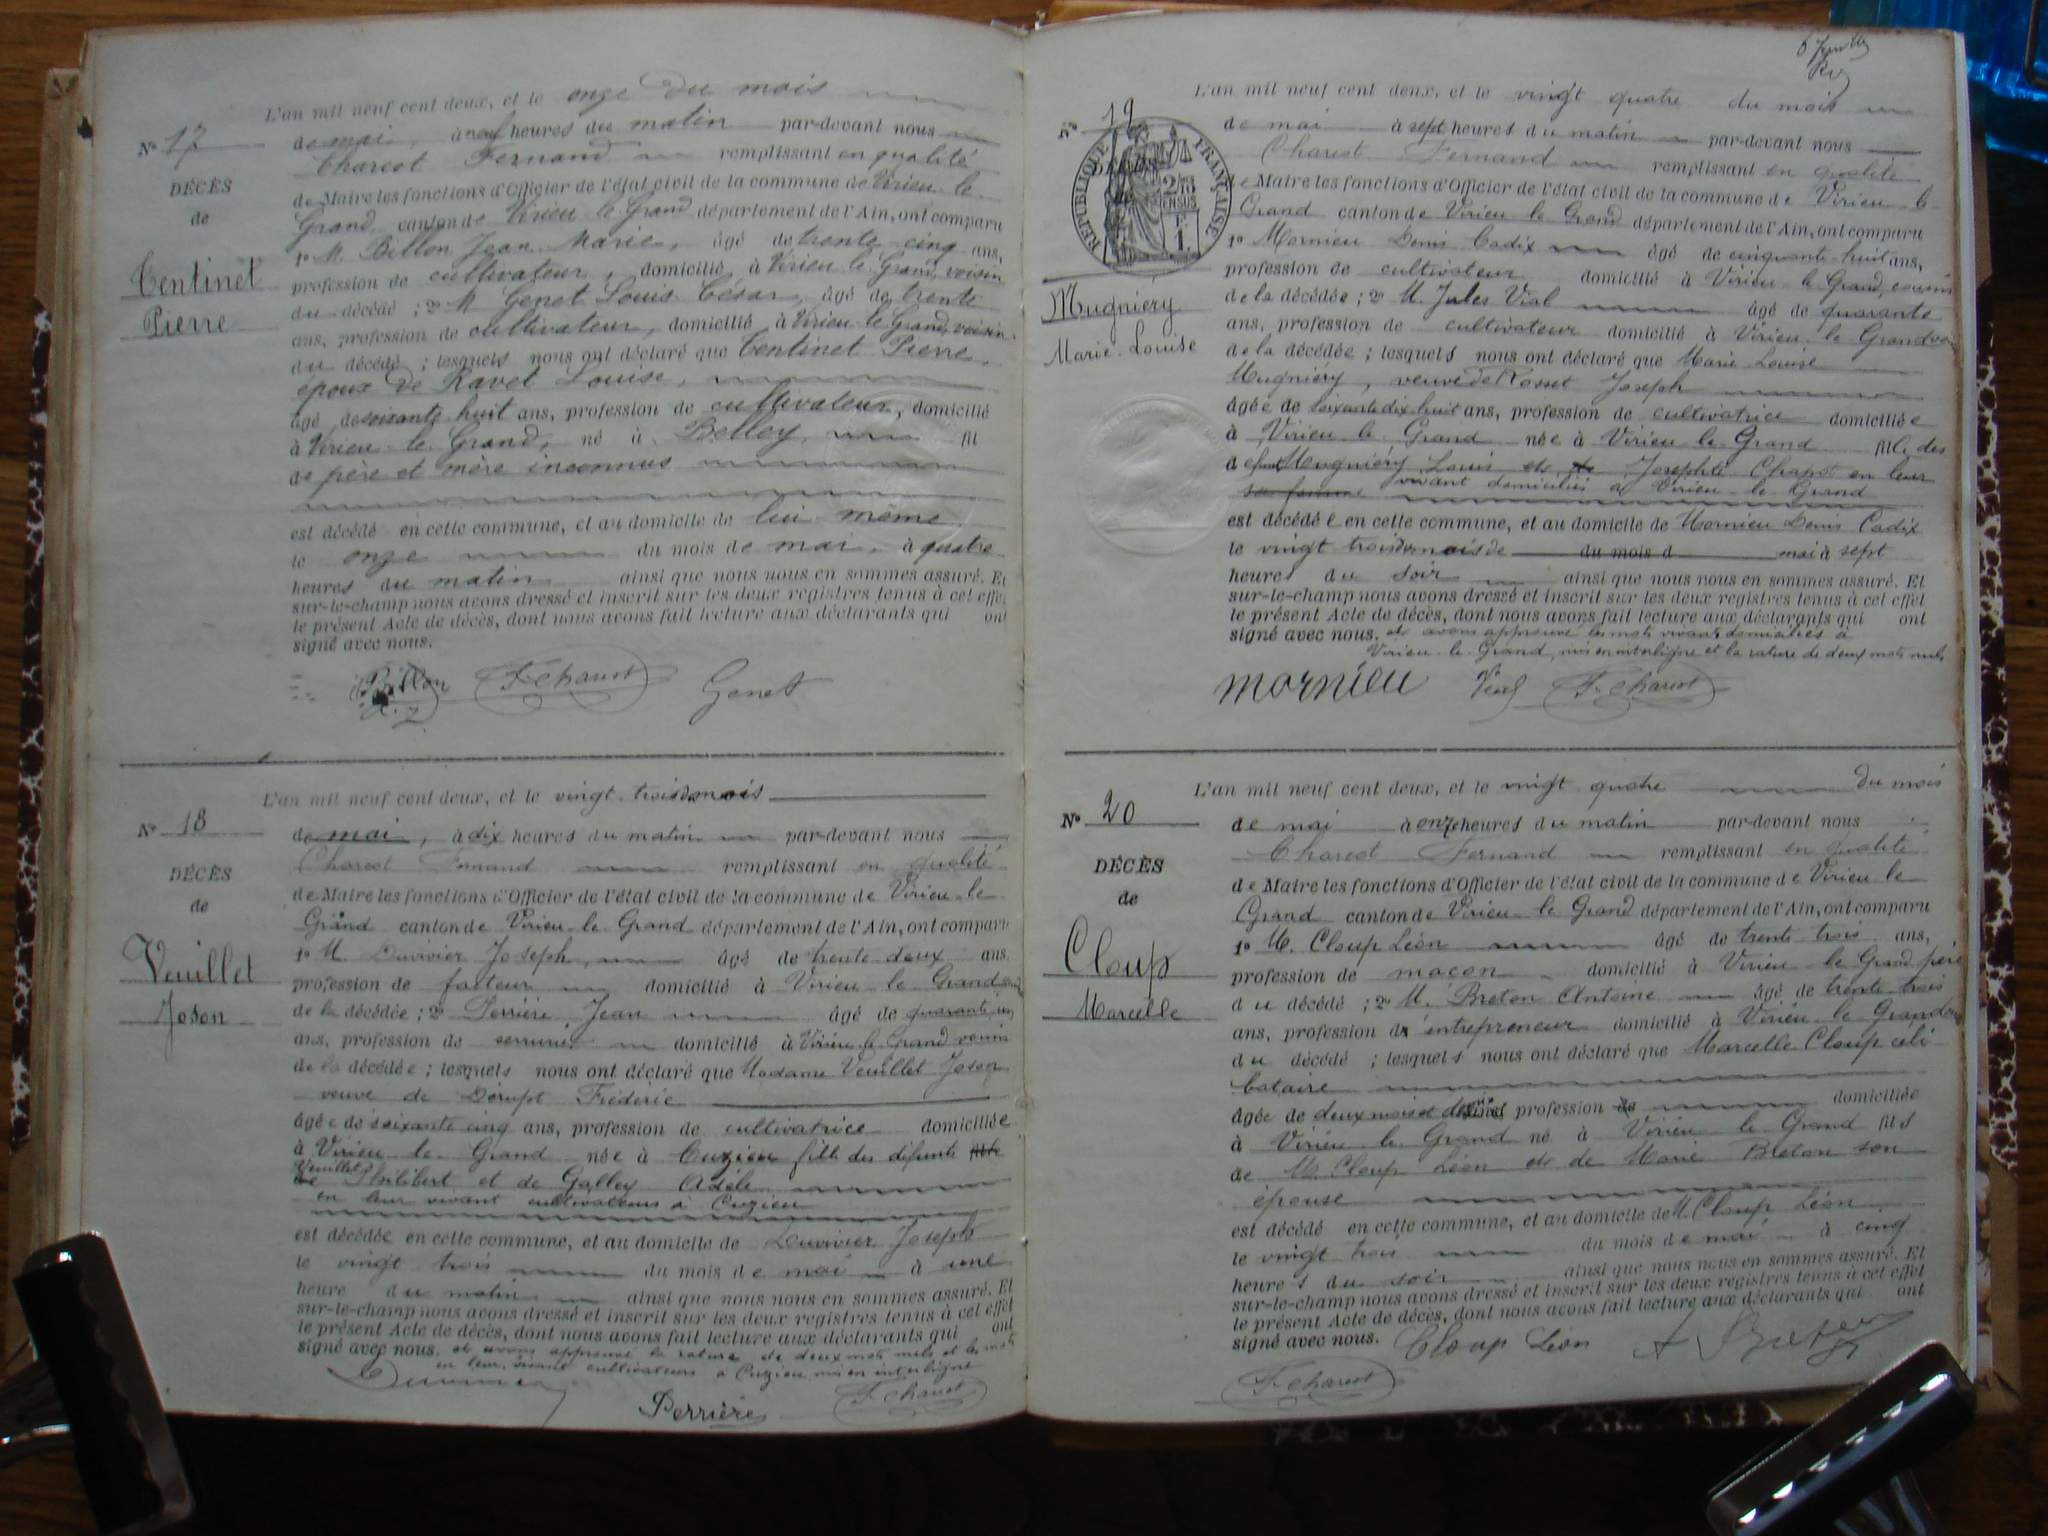 L'an mil neuf cent deux, et le onze du mois
N° 17
de mai, à neuf heures du matin par-devant nous
Charcot Fernand remplissant en qualité
DÉCÈS
de Maire les fonctions d'Officier de l'état civil de la commune de Virieu-le-
de
Grand canton de Virieu-le-Grand département de l'Ain, ont comparu
1° M. Billon Jean-Marie, âgé de trente-cinq ans,
Tentinet
profession de cultivateur, domicilié à Virieu-le-Grand, voisin
Pierre
du décédé ; 2° M. Genet Louis-César, âgé de trente
ans, profession de cultivateur, domicilié à Virieu-le-Grand, voisin
du décédé ; lesquels nous ont déclaré que Tentinet Pierre,
époux de Ravet Louise,
âgé de soixante-huit ans, profession de cultivateur, domicilié
à Virieu-le-Grand, né à Belley fil
de père et mère inconnus
est décédé en cette commune, et au domicile de lui-même
le onze du mois de mai, à quatre
heures du matin ainsi que nous nous en sommes assuré. Et
sur-le-champ nous avons dressé et inscrit sur les deux registres tenus à cet effet
le présent Acte de décès, dont nous avons fait lecture aux déclarants qui ont
signé avec nous.
Billon F. Charcot Genet
L'an mil neuf cent deux, et le vingt-trois du mois
N° 18
de mai, à dix heures du matin par-devant nous
Charcot Fernand remplissant en qualité
DÉCÈS
de Maire les fonctions d'Officier de l'état civil de la commune de Virieu-le-
de
Grand canton de Virieu-le-Grand département de l'Ain, ont comparu
1° M. Duvivier Joseph, âgé de trente-deux ans,
Veuillet
profession de facteur domicilié à Virieu-le-Grand
Joson
de la décédée ; 2° Perrière Jean âgé de quarante-un
ans, profession de serrurier domicilié à Virieu-le-Grand voisin
de la décédée ; lesquels nous ont déclaré que Madame Veuillet Joson
veuve de Dérupt Frédéric
âgée de soixante cinq ans, profession de cultivatrice domiciliée
à Virieu-le-Grand née à Cuzieu fille des défunts
Veuillet Philibert et de Galley Adèle
en leur vivant cultivateurs à Cuzieu
est décédée en cette commune, et au domicile de Duvivier Joseph
le vingt trois du mois de mai à une
heure du matin ainsi que nous nous en sommes assuré. Et
sur-le-champ nous avons dressé et inscrit sur les deux registres tenus à cet effet
le présent Acte de décès, dont nous avons fait lecture aux déclarants qui ont
signé avec nous. et avons approuvé la rature de deux mots nuls et les mots
en leur vivant cultivateurs à Cuzieu mis en interligne
Duvivier
Perrière F. Charcot
L'an mil neuf cent deux, et le vingt quatre du mois
N° 19
de mai à sept heures du matin par-devant nous
Charcot Fernand remplissant en qualité
RÉPUBLIQUE FRANÇAISE
2/10 EN SUS
F. 1.
de Maire les fonctions d'Officier de l'état civil de la commune de Virieu-le-
Grand canton de Virieu-le-Grand département de l'Ain, ont comparu
1° Mornieu Denis Cadix âgé de cinquante-huit ans,
profession de cultivateur domicilié à Virieu-le-Grand, cousin
Mugniéry
de la décédée ; 2° M. Jules Vial âgé de quarante
Marie-Louise
ans, profession de cultivateur domicilié à Virieu-le-Grand
de la décédée ; lesquels nous ont déclaré que Marie-Louise
Mugniéry, veuve de Rosset Joseph
âgée de soixante-dix-huit ans, profession de cultivatrice domiciliée
à Virieu-le-Grand née à Virieu-le-Grand fille des
defunts Mugniéry Louis, et Josephte Chapot en leur
vivant domiciliés à Virieu-le-Grand
est décédée en cette commune, et au domicile de Mornieu Denis Cadix
le vingt trois du mois de du mois d mai à sept
heures du soir ainsi que nous nous en sommes assuré. Et
sur-le-champ nous avons dressé et inscrit sur les deux registres tenus à cet effet
le présent Acte de décès, dont nous avons fait lecture aux déclarants qui ont
signé avec nous. et avons approuvé les mots vivant domiciliés à
Virieu-le-Grand, mis en interligne et la rature de deux mots nuls
Mornieu Vial F. Charcot
L'an mil neuf cent deux, et le vingt-quatre du mois
N° 20
de mai à onze heures du matin par-devant nous
Charcot Fernand remplissant en qualité
DÉCÈS
de Maire les fonctions d'Officier de l'état civil de la commune de Virieu-le-
de
Grand canton de Virieu-le-Grand département de l'Ain, ont comparu
1° M. Cloup Léon âgé de trente-trois ans,
Cloup
profession de maçon domicilié à Virieu-le-Grand père
Marcelle
du décédé ; 2° M. Breton Antoine âgé de trente-trois
ans, profession d'entrepreneur domicilié à Virieu-le-Grand
du décédé ; lesquels nous ont déclaré que Marcelle Cloup céli-
bataire
âgée de deux mois et demi profession de domiciliée
à Virieu-le-Grand né à Virieu-le-Grand fils
de M. Cloup Léon et de Marie Breton son
épouse
est décédé en cette commune, et au domicile de M. Cloup Léon
le vingt trois du mois de mai à cinq
heures du soir ainsi que nous nous en sommes assuré. Et
sur-le-champ nous avons dressé et inscrit sur les deux registres tenus à cet effet
le présent Acte de décès, dont nous avons fait lecture aux déclarants qui ont
signé avec nous. Cloup Léon A Breton
F. Charcot